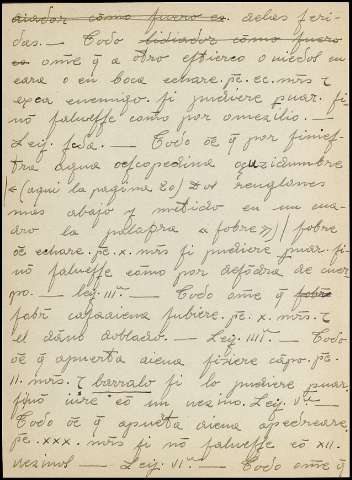 aiador como fuero es. delas feri-
das. — Todo lidiador como fuero
es ome q̄ a otro estierco o niedos en
cara o en boca echare. pē. cc. mrs̄ τ
exca enemigo. si pudiere puar. si
nō saluesse como por omezilio. —
Ley. scda. — Todo oē q̄ por finies-
tra agua oescopedina o suzidumbre
(aqui la pagina 20) Dos renglones
mas abajo y metido en un cua-
dro la palabra « sobre ») // sobre
oē echare. pē. x. mrs̄ si pudiere puar. si
nō saluesse como por de de cuer-
po. — ley. IIIª. — Todo ome q̄ sobre
sobr̄ casa aiena subiere. pē. x. mrs̄. τ
el daño doblado. — Ley. IIIIª. — Todo
oē q̄ apuerta aiena fiziere pē.
II. mrs̄. τ barralo si lo pudiere puar.
sinō iure cō un uezino. Ley. Vª. —
Todo oē q̄ apuerta aiena apedreare
pē. xxx. mrs̄ si nō saluesse cō XII.
uezinos — Ley. VIª. — Todo ome q̄